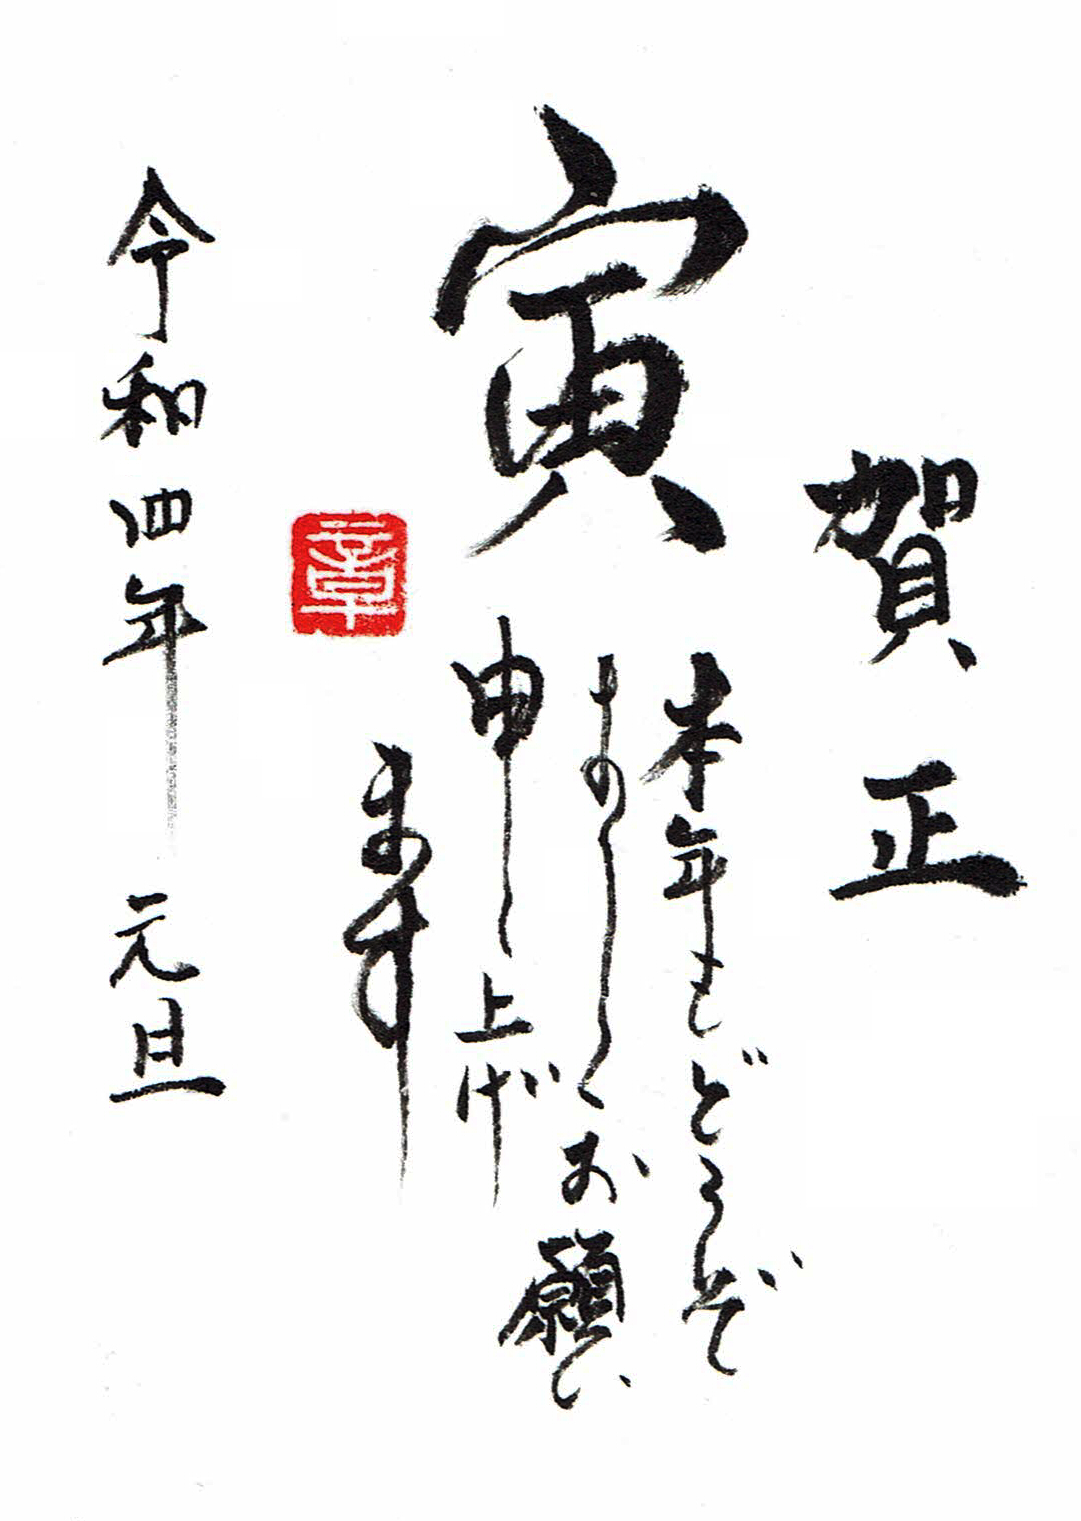 賀正
寅
本年もどうぞ
よろしくお願い
申し上げ
ます
章
令和四年 元旦